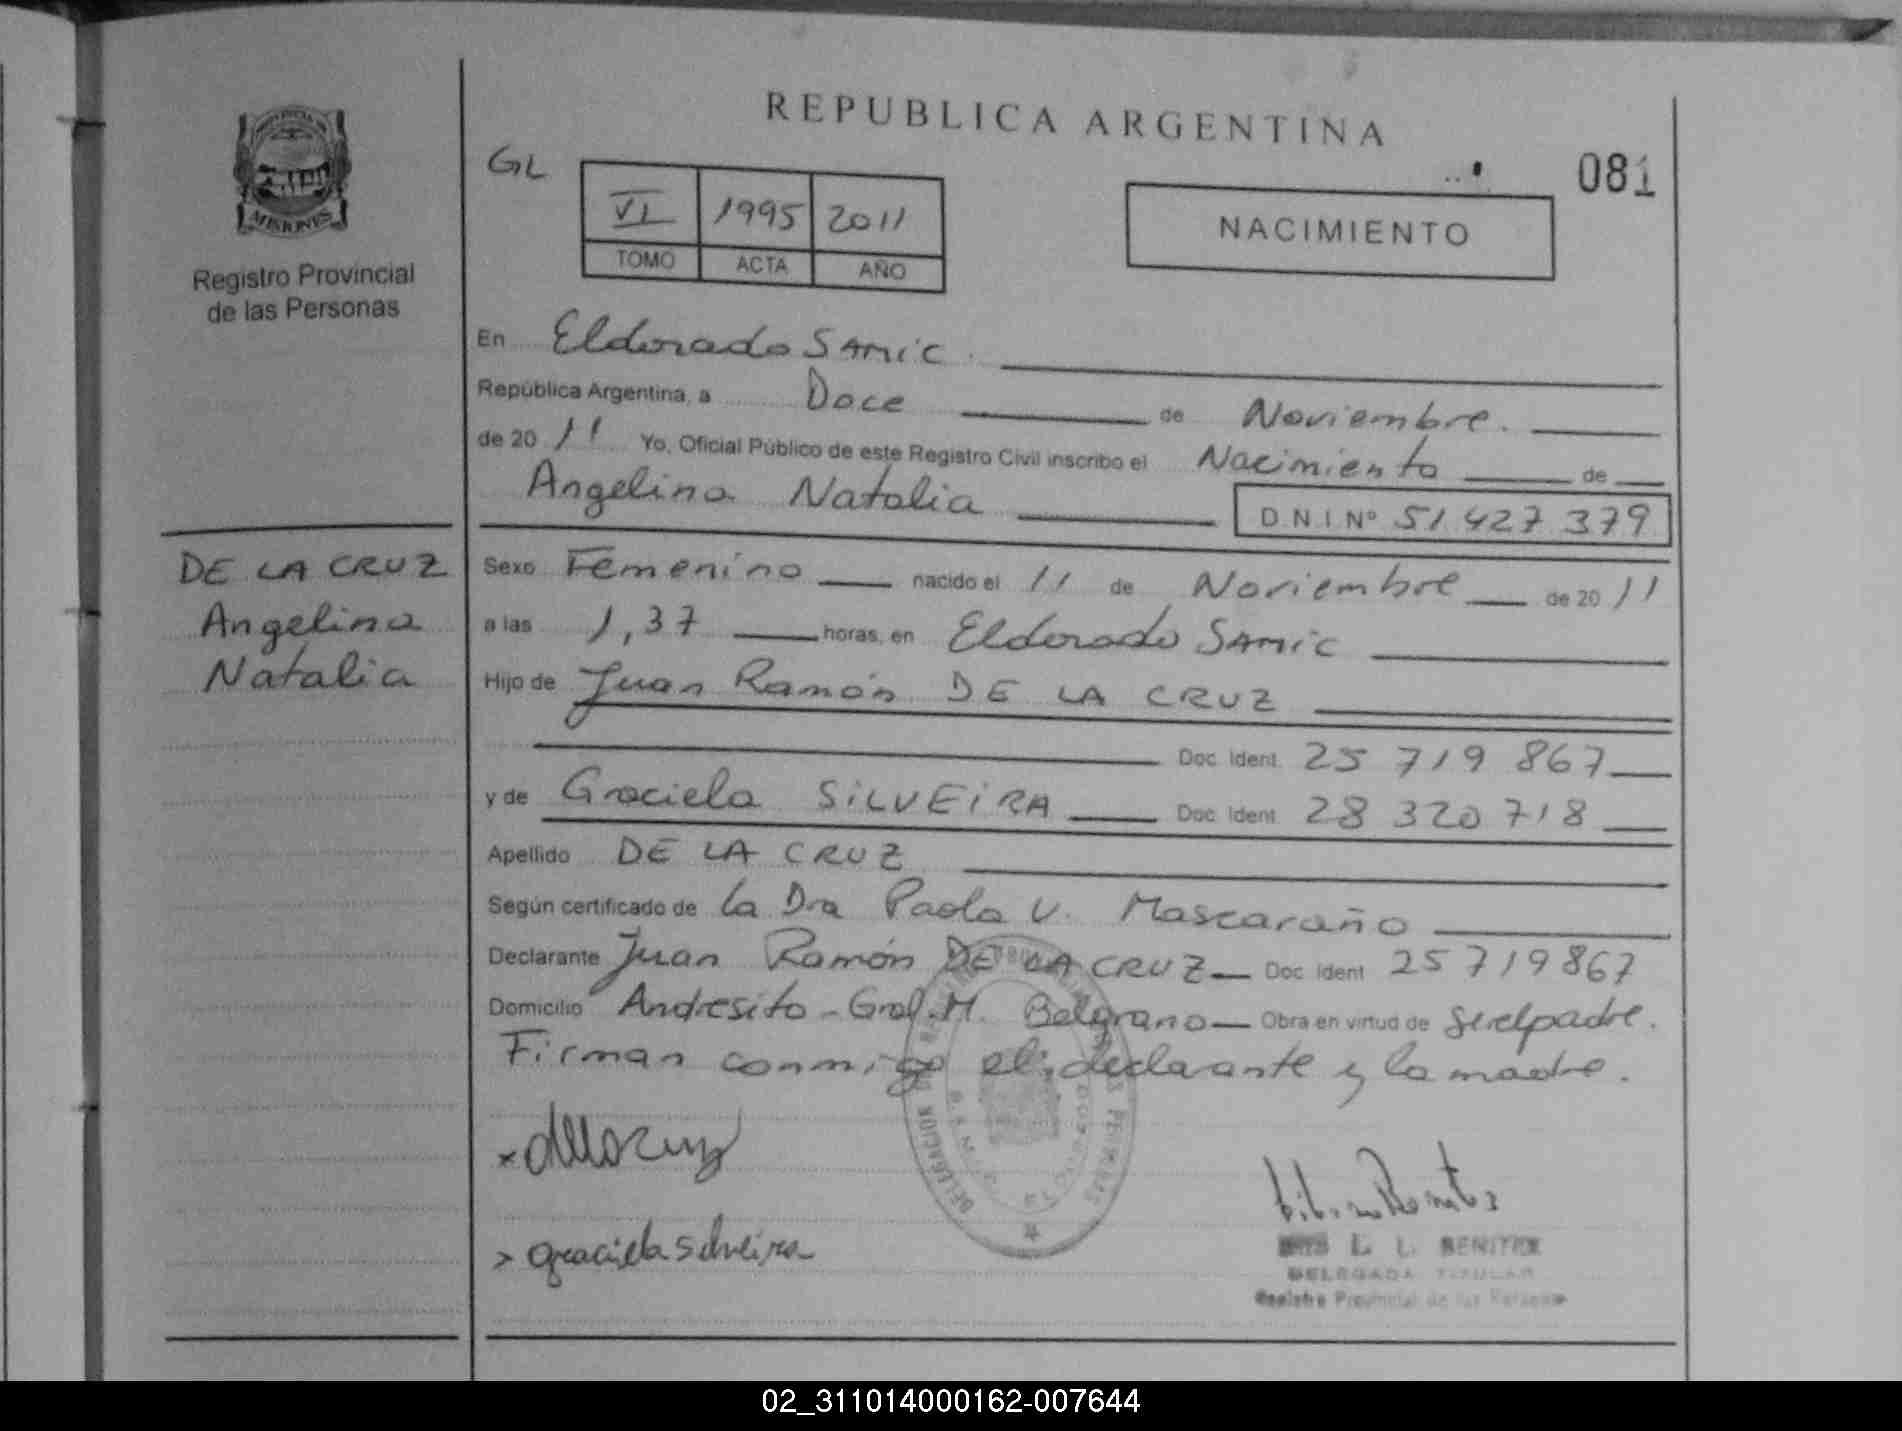 REPUBLICA ARGENTINA
081
GL
VI 1995 2011
TOMO ACTA AÑO
NACIMIENTO
MISIONES
Registro Provincial
de las Personas
En Eldorado SAMiC.
República Argentina, a Doce de Noviembre.
de 2011 Yo, Oficial Público de este Registro Civil inscribo el Nacimiento de
Angelina Natalia D.N.I Nº 51 427 379
DE LA CRUZ
Angelina
Natalia
Sexo Femenino nacido el 11 de Noviembre de 2011
a las 1,37 horas, en Eldorado SAMiC
Hijo de Juan Ramón DE LA CRUZ
Doc. Ident. 25 719 867
y de Graciela SiLVEiRA Doc. Ident. 28 320 718
Apellido DE LA CRUZ
Según certificado de la Dra Paola V. Mascaraño
Declarante Juan Ramón DE LA CRUZ Doc Ident 25 719 867
Domicilio Andresito - Gral. M. Belgrano Obra en virtud de ser el padre.
Firman conmigo el declarante y la madre.
x delacruz
DELEGACION
> graciela silveira
L. L. BENITEZ
DELEGADA TITULAR
Registro Provincial de las Personas
02_311014000162-007644